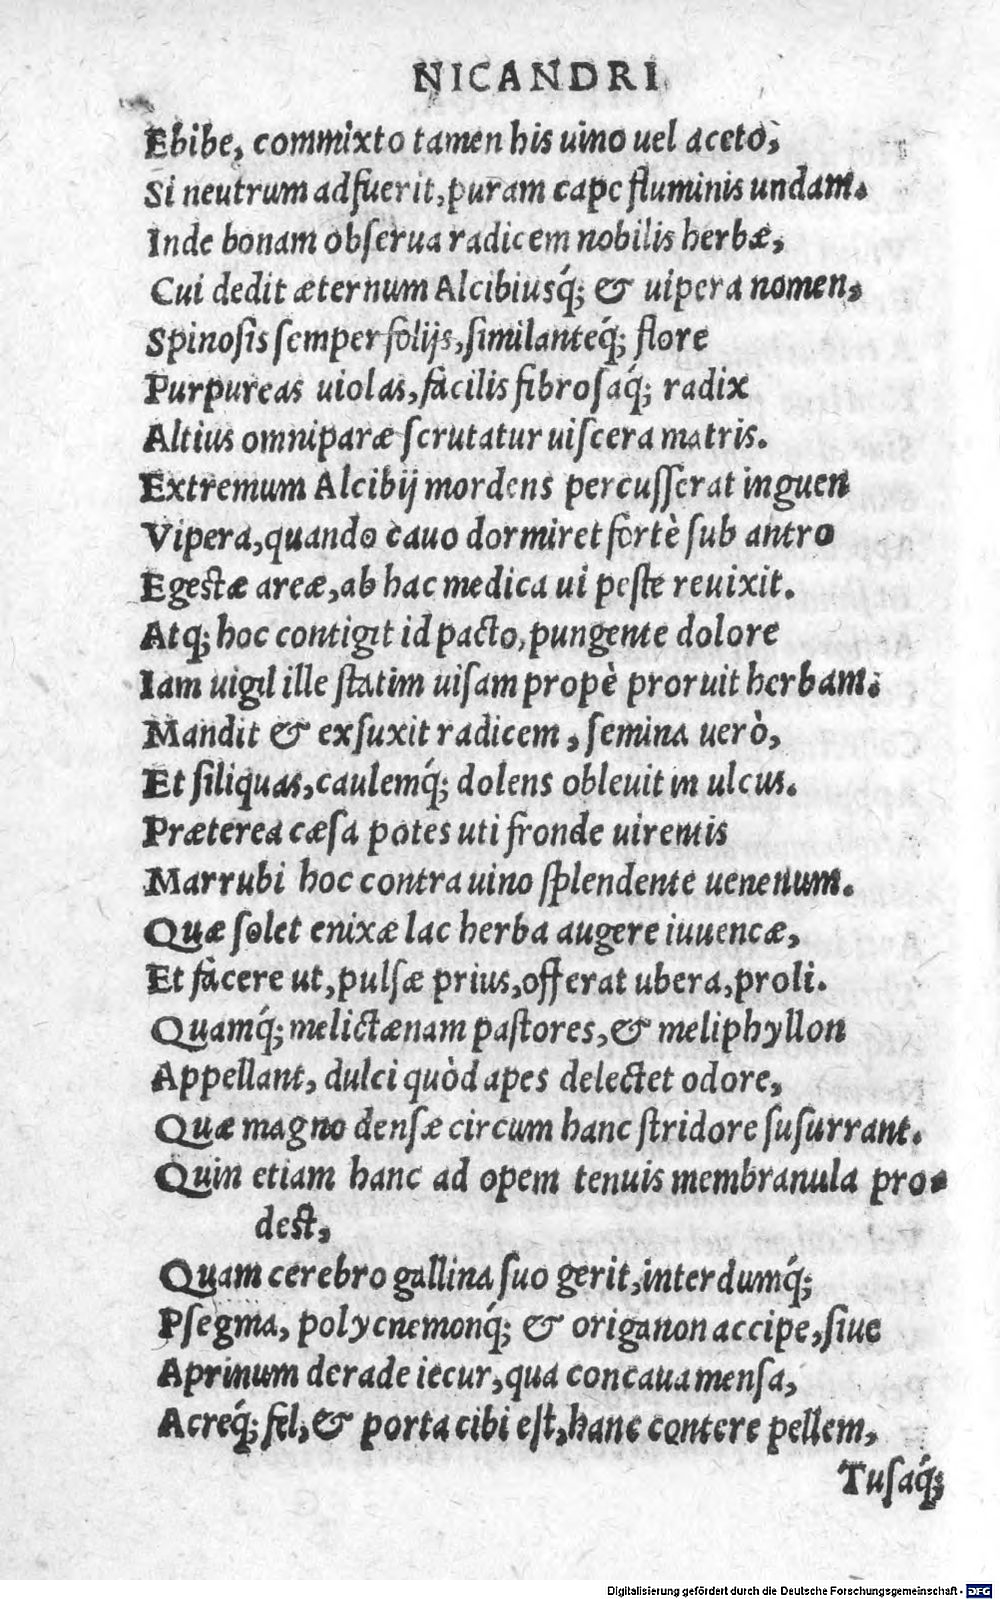 NICANDRI
Ebibe, commixto tamen his uino uel aceto,
Si neutrum adfuerit, puram cape fluminis undam.
Inde bonam obserua radicem nobilis herbæ,
Cui dedit æternum Alcibiusq́; & uipera nomen,
Spinosis semper folijs, similanteq́; flore
Purpureas uiolas, facilis fibrosaq́; radix
Altius omniparæ scrutatur uiscera matris.
Extremum Alcibij mordens percusserat inguen
Vipera, quando cauo dormiret fortè sub antro
Egestæ areæ, ab hac medica ui peste reuixit.
Atq; hoc contigit id pacto, pungente dolore
Iam uigil ille statim uisam propè proruit herbam.
Mandit & exsuxit radicem, semina uerò,
Et siliquas, caulemq́; dolens obleuit in ulcus.
Præterea cæsa potes uti fronde uirentis
Marrubi hoc contra uino splendente uenenum.
Quæ solet enixæ lac herba augere iuuencæ,
Et facere ut, pulsæ prius, offerat ubera, proli.
Quamq́; melictænam pastores, & meliphyllon
Appellant, dulci quòd apes delectet odore,
Quæ magno densæ circum hanc stridore susurrant.
Quin etiam hanc ad opem tenuis membranula pro-
dest,
Quam cerebro gallina suo gerit, interdumq́;
Psegma, polycnemonq́; & origanon accipe, siue
Aprinum derade iecur, qua concaua mensa,
Acreq́; fel, & porta cibi est, hanc contere pellem,
Tusaq́;
Digitalisierung gefördert durch die Deutsche Forschungsgemeinschaft - DFG